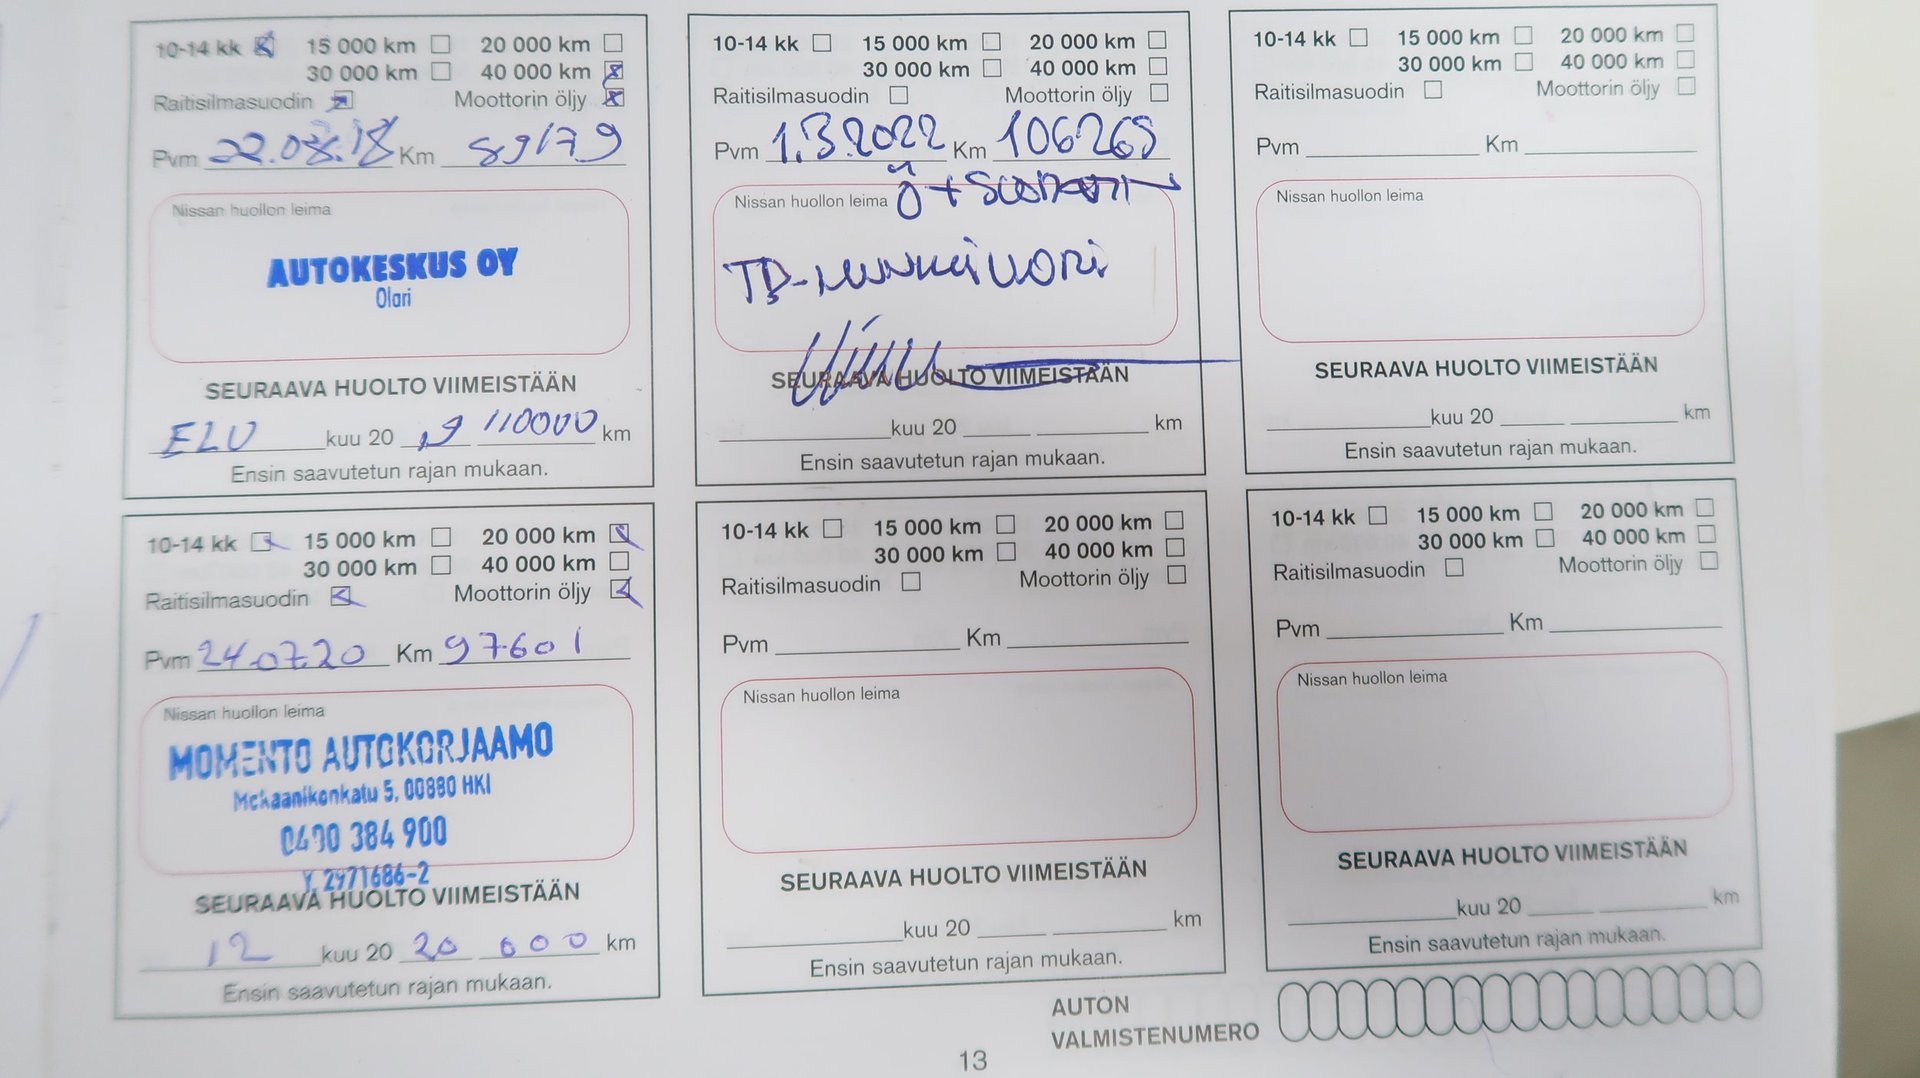 10-14 kk 15 000 km 20 000 km
30 000 km 40 000 km
Raitisilmasuodin Moottorin öljy
Pvm 22.08.18 Km 89179
Nissan huollon leima
AUTOKESKUS OY
Olari
SEURAAVA HUOLTO VIIMEISTÄÄN
ELO kuu 20 19 110000 km
Ensin saavutetun rajan mukaan.
10-14 kk 15 000 km 20 000 km
30 000 km 40 000 km
Raitisilmasuodin Moottorin öljy
Pvm 24.07.20 Km 97601
Nissan huollon leima
MOMENTO AUTOKORJAAMO
Mekaanikonkatu 5, 00880 HKI
0400 384 900
Y. 2971686-2
SEURAAVA HUOLTO VIIMEISTÄÄN
12 kuu 20 20 000 km
Ensin saavutetun rajan mukaan.
10-14 kk 15 000 km 20 000 km
30 000 km 40 000 km
Raitisilmasuodin Moottorin öljy
Pvm 1.3.2022 Km 106265
Ö +
Nissan huollon leima
TD-Munkkivuori
SEURAAVA HUOLTO VIIMEISTÄÄN
kuu 20 km
Ensin saavutetun rajan mukaan.
10-14 kk 15 000 km 20 000 km
30 000 km 40 000 km
Raitisilmasuodin Moottorin öljy
Pvm Km
Nissan huollon leima
SEURAAVA HUOLTO VIIMEISTÄÄN
kuu 20 km
Ensin saavutetun rajan mukaan.
10-14 kk 15 000 km 20 000 km
30 000 km 40 000 km
Raitisilmasuodin Moottorin öljy
Pvm Km
Nissan huollon leima
SEURAAVA HUOLTO VIIMEISTÄÄN
kuu 20 km
Ensin saavutetun rajan mukaan.
10-14 kk 15 000 km 20 000 km
30 000 km 40 000 km
Raitisilmasuodin Moottorin öljy
Pvm Km
Nissan huollon leima
SEURAAVA HUOLTO VIIMEISTÄÄN
kuu 20 km
Ensin saavutetun rajan mukaan.
AUTON
VALMISTENUMERO
13